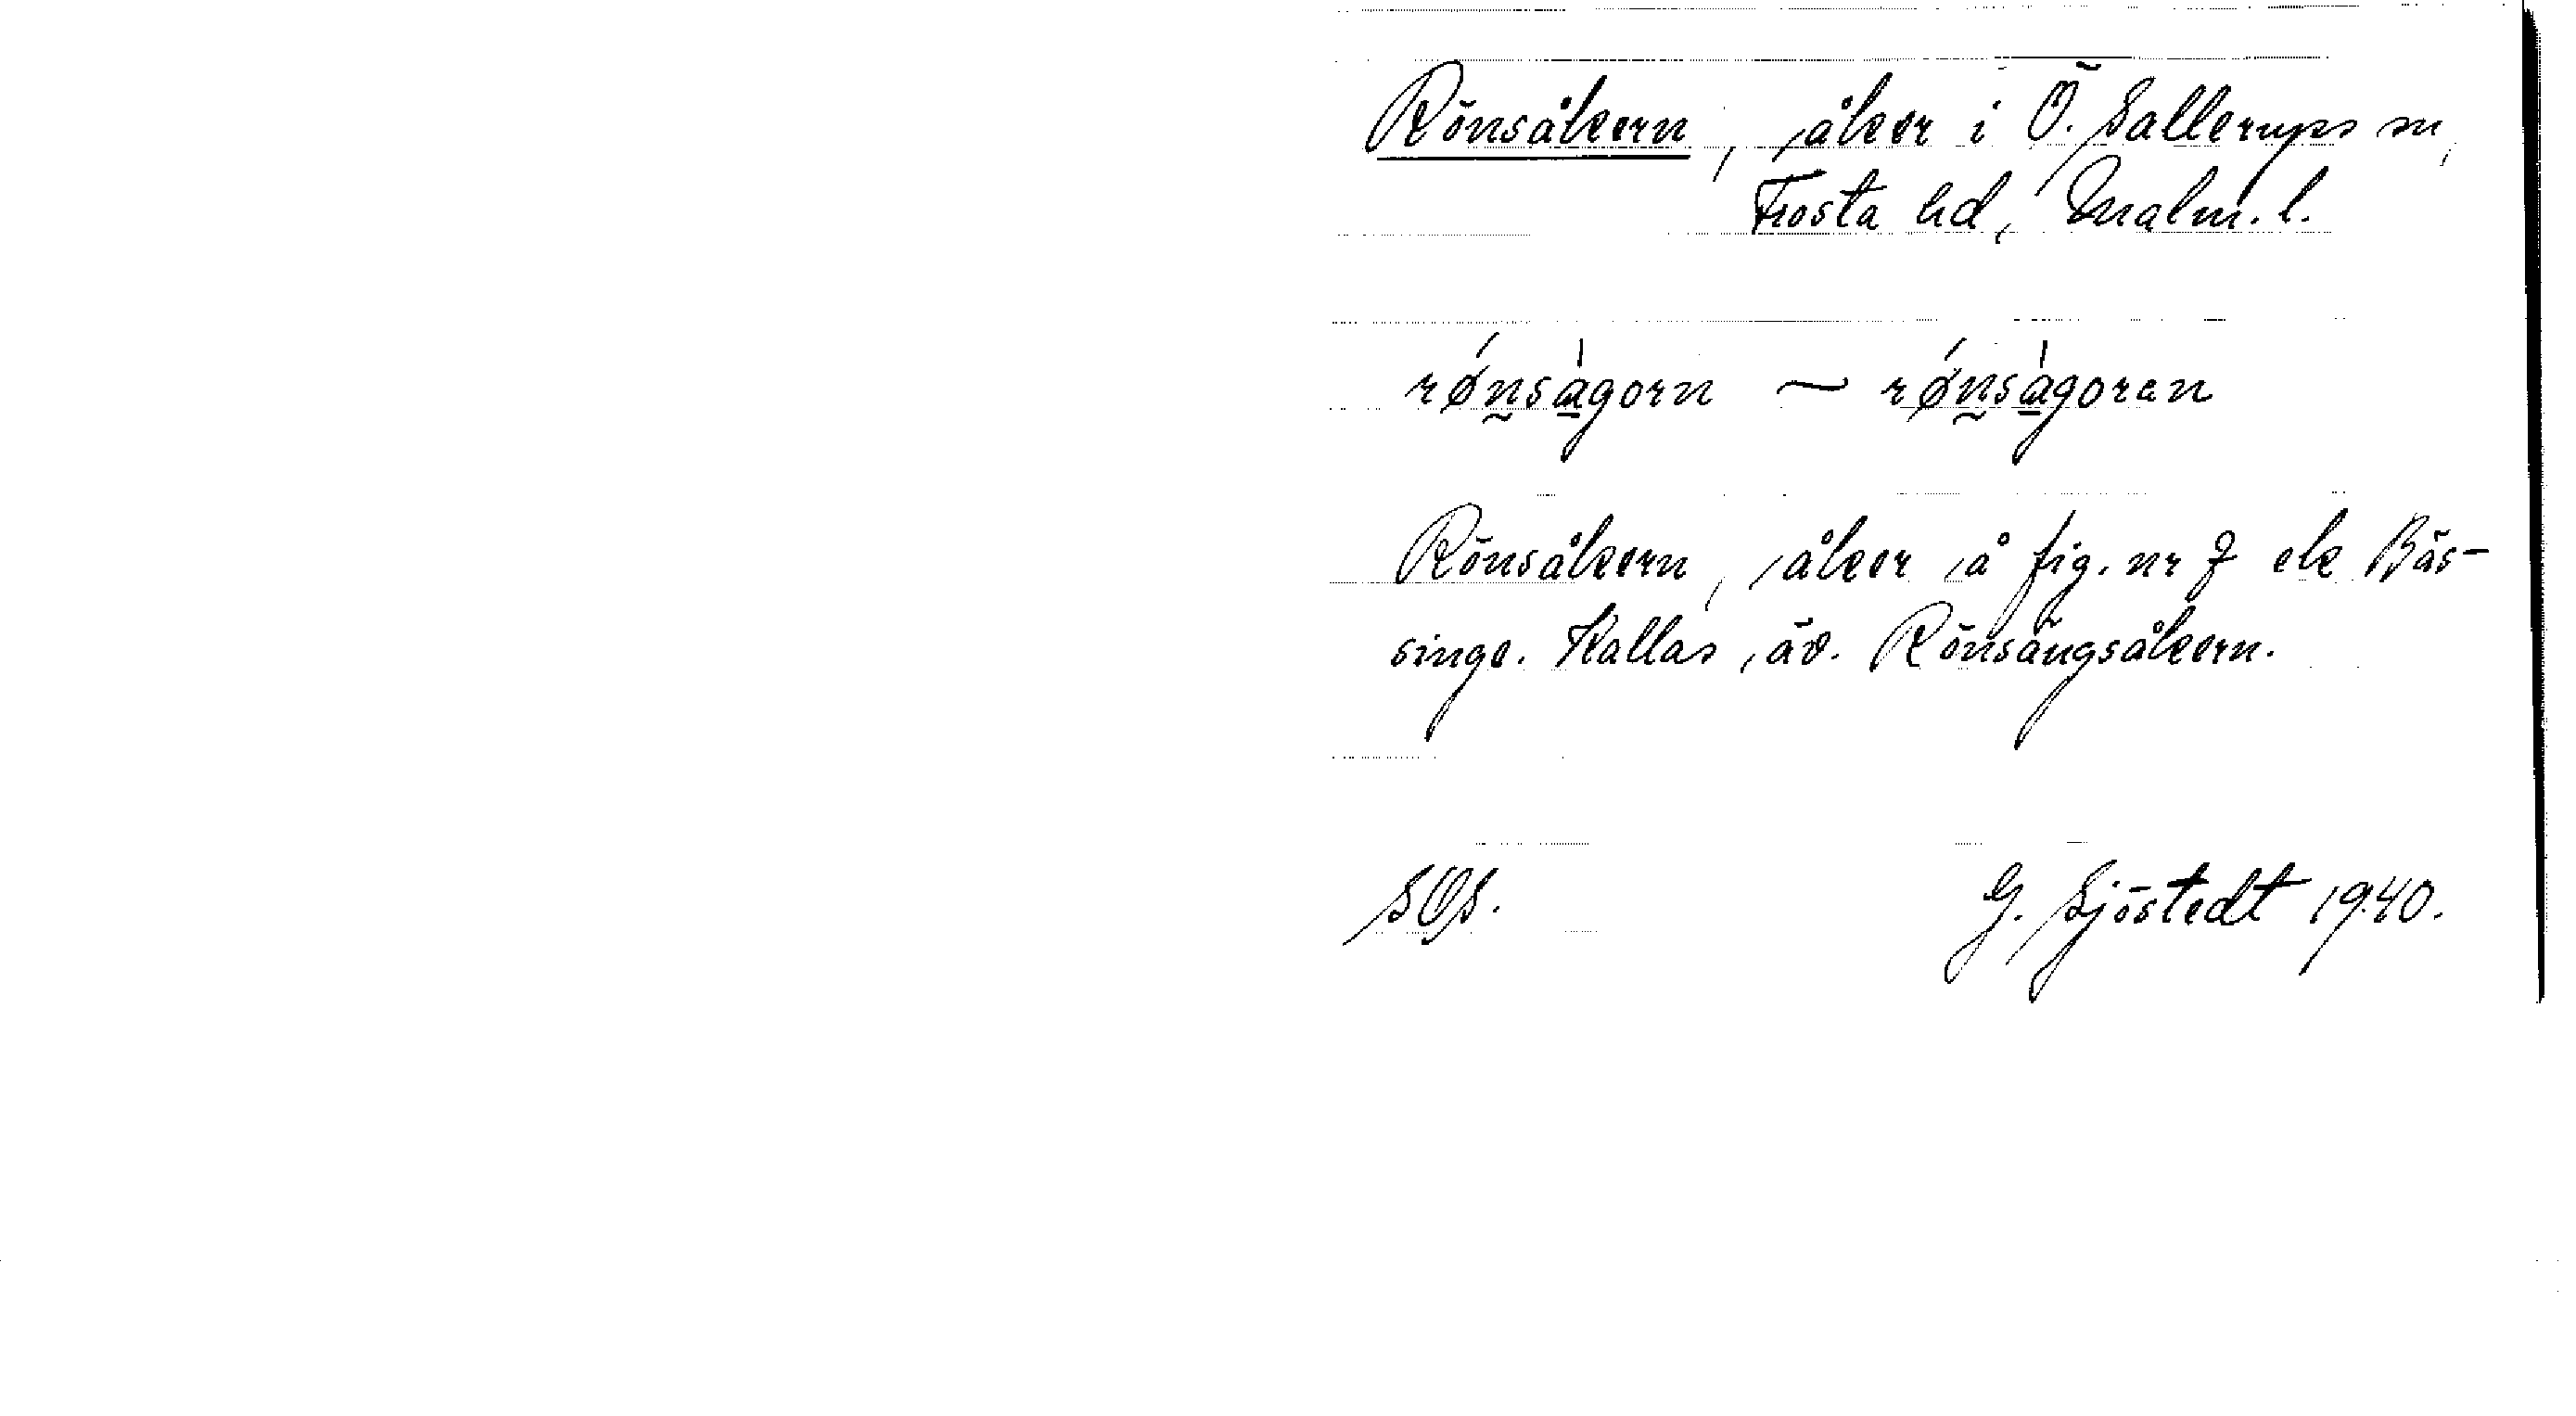 Rönsåkern, åker i Ö. Sallerups sn,
Frosta hd, Malm. l.
rǿn̰sàgorn ~ rǿn̰sàgoran
Rönsåkern, åker å fig. nr 7 ek Bäs-
singe. Kallas äv. Rönsängsåkern.
SOS.
G. Sjöstedt 1940.